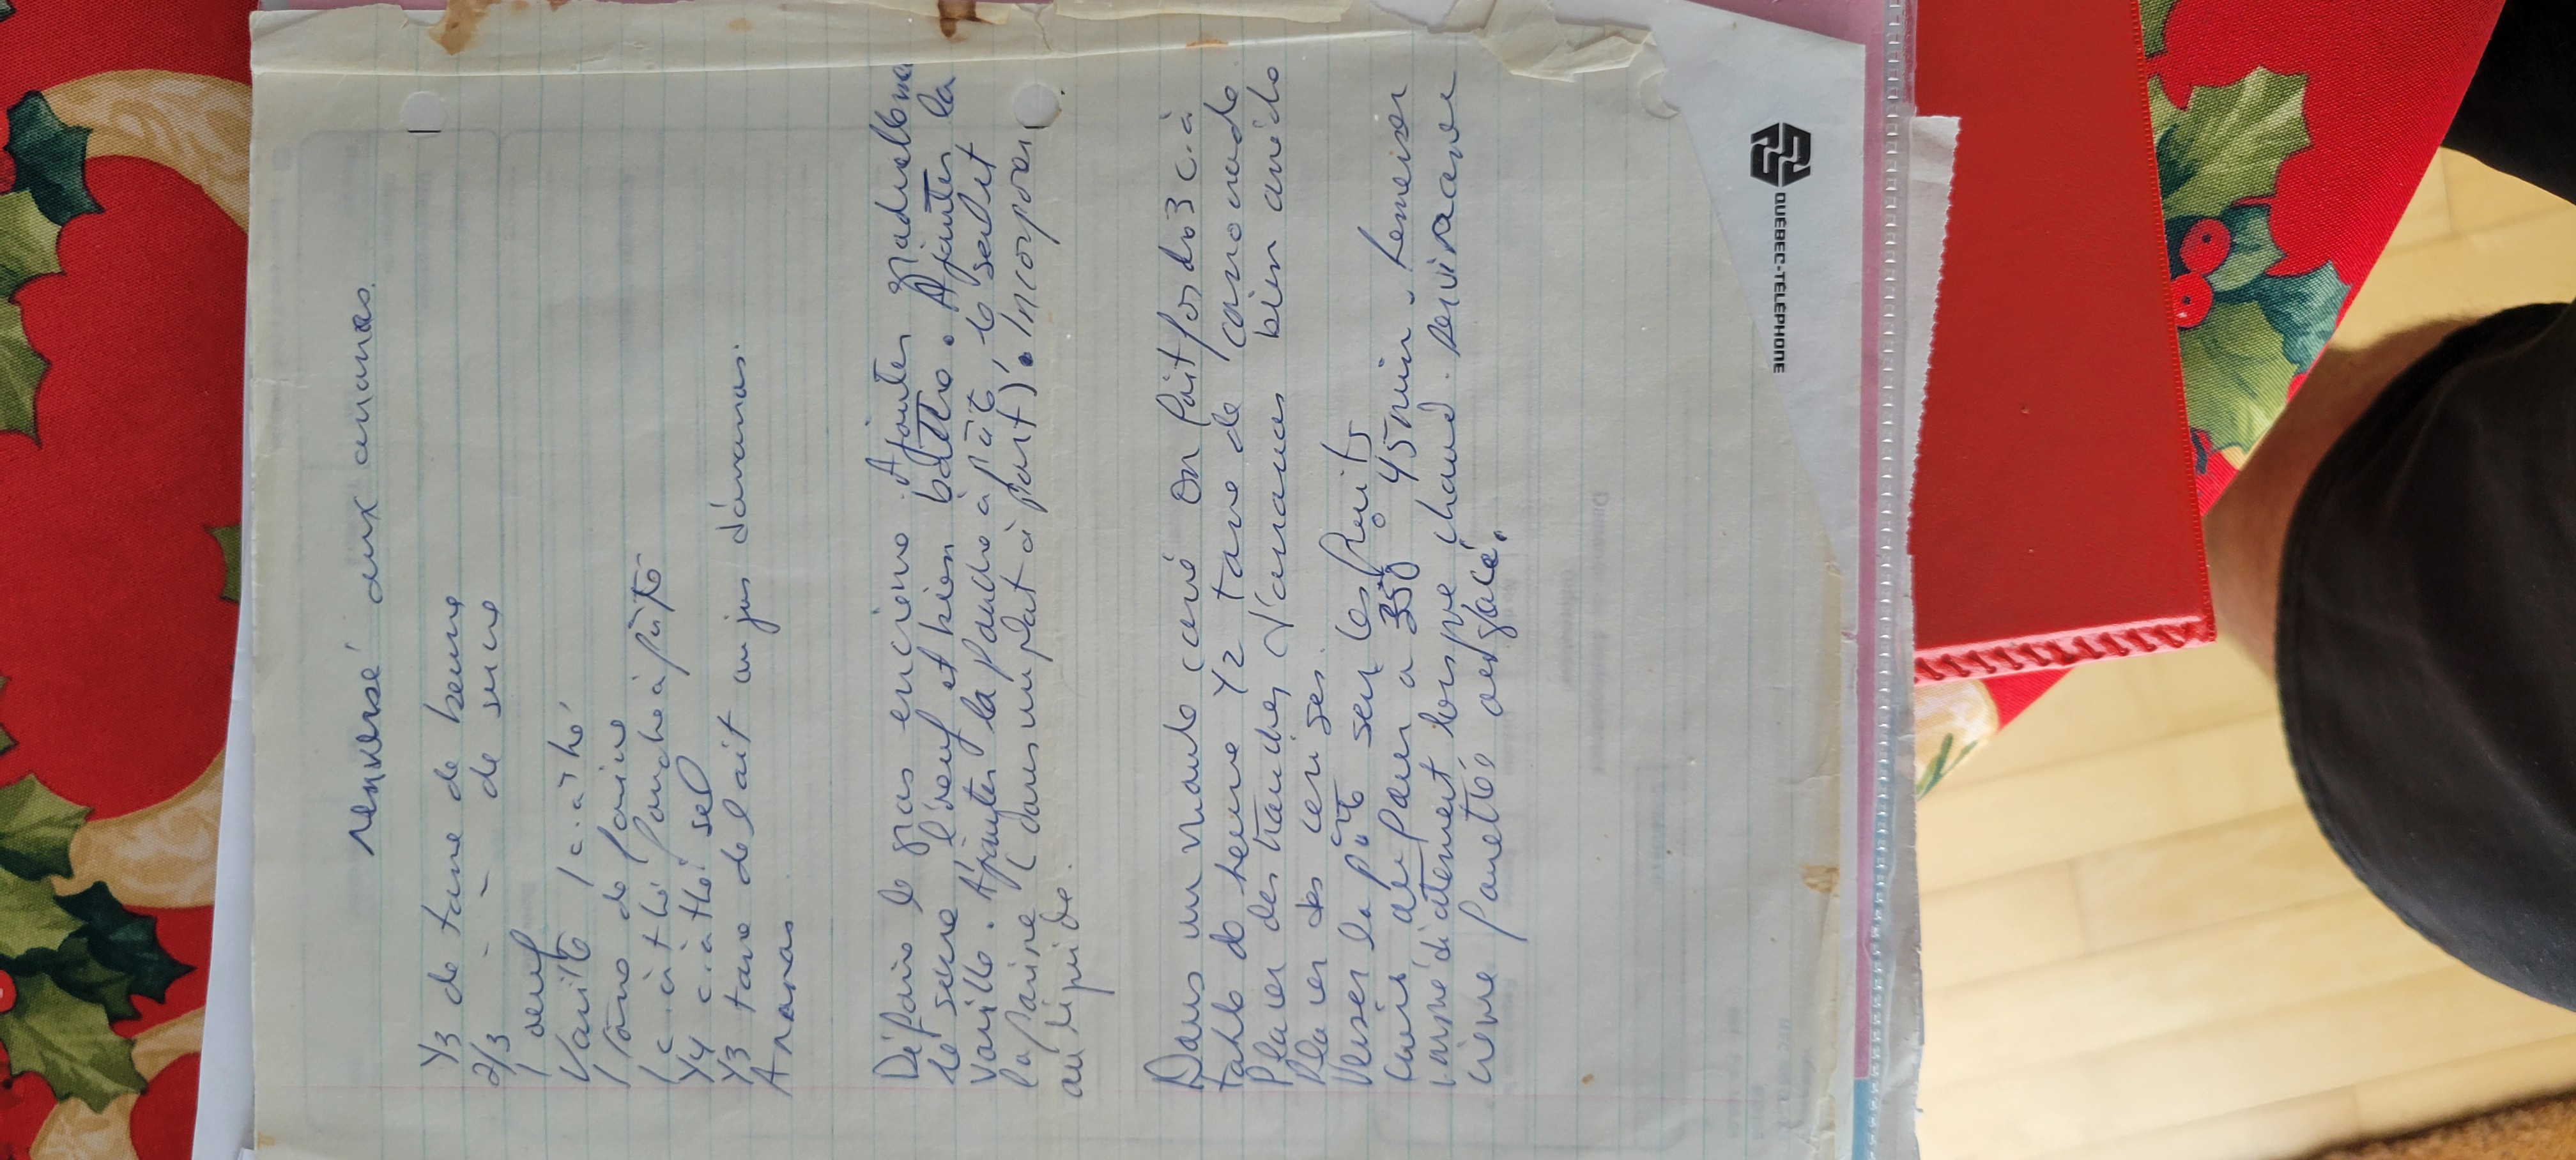 Renversé aux ananas.
1/3 de tasse de beurre
2/3 - - de sucre
1 oeuf
Vanille 1 c. à thé
1 tasse de farine
1 c. à thé poudre à pâte
1/4 c. à thé sel
1/3 tasse de lait au jus d'ananas.
Ananas
Défaire le gras en crème. Ajouter graduellement
le sucre l'oeuf et bien battre. Ajouter la
vanille. Ajouter la poudre à pâte, le sel et
la farine (dans un plat à part). Incorporer
au liquide.
Dans un moule carré on fait fondre 3 c. à
table de beurre 1/2 tasse de cassonade.
Placer des tranches d'ananas bien
Placer des cerises.
Verser la pâte sur les fruits
Cuire au four a 350° 45 min. Renverser
immédiatement lorsque chaud. Servir avec
crème fouettée ou glacé.
QUEBEC-TELEPHONE